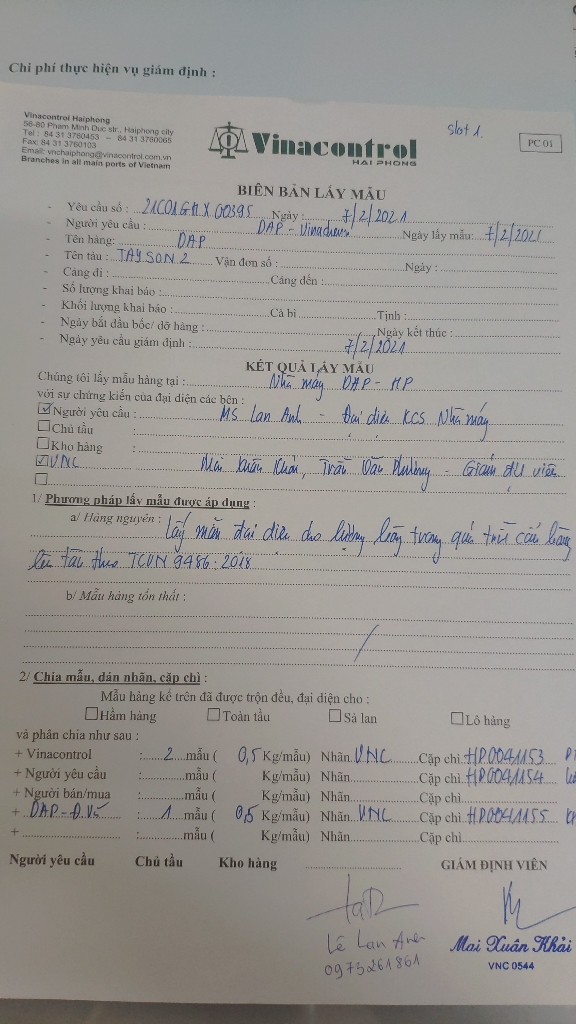 Chi phí thực hiện vụ giám định :
Vinacontrol Haiphong
56-80 Pham Minh Duc str., Haiphong city
Tel : 84 31 3760453 – 84 31 3760065
Fax: 84 31 3760103
Email: vnchaiphong@vinacontrol.com.vn
Branches in all main ports of Vietnam
Vinacontrol
HAI PHONG
Slot 1.
PC 01
BIÊN BẢN LẤY MẪU
- Yêu cầu số : 21C01GHX00395 Ngày : 7/2/2021
- Người yêu cầu : DAP - Vinachem Ngày lấy mẫu: 7/2/2021
- Tên hàng: DAP
- Tên tàu : TAY SON 2 Vận đơn số : Ngày :
- Cảng đi : Cảng đến :
- Số lượng khai báo :
- Khối lượng khai báo : Cả bì Tịnh :
- Ngày bắt đầu bốc/ dỡ hàng : Ngày kết thúc :
- Ngày yêu cầu giám định : 7/2/2021
KẾT QUẢ LẤY MẪU
Chúng tôi lấy mẫu hàng tại : Nhà máy DAP - HP
với sự chứng kiến của đại diện các bên :
Người yêu cầu : MS Lan Anh - Đại diện KCS Nhà máy
Chủ tầu :
Kho hàng :
VNC Mai Xuân Khải, Trần Văn Phường - Giám định viên
1/ Phương pháp lấy mẫu được áp dụng :
a/ Hàng nguyên : Lấy mẫu đại diện cho lượng hàng trong quá trình cẩu hàng
lên tàu theo TCVN 9486:2018
b/ Mẫu hàng tổn thất :
2/ Chia mẫu, dán nhãn, cặp chì :
Mẫu hàng kể trên đã được trộn đều, đại diện cho :
Hầm hàng Toàn tầu Sà lan Lô hàng
và phân chia như sau :
+ Vinacontrol : 2 mẫu ( 0,5 Kg/mẫu) Nhãn VNC Cặp chì HP0041153
+ Người yêu cầu : mẫu ( Kg/mẫu) Nhãn Cặp chì HP0041154
+ Người bán/mua : mẫu ( Kg/mẫu) Nhãn Cặp chì
+ DAP-Đ.Vũ : 1 mẫu ( 0,5 Kg/mẫu) Nhãn VNC Cặp chì HP0041155
+ : mẫu ( Kg/mẫu) Nhãn Cặp chì
Người yêu cầu Chủ tầu Kho hàng GIÁM ĐỊNH VIÊN
Lê Lan Anh
0973261861
Mai Xuân Khải
VNC 0544